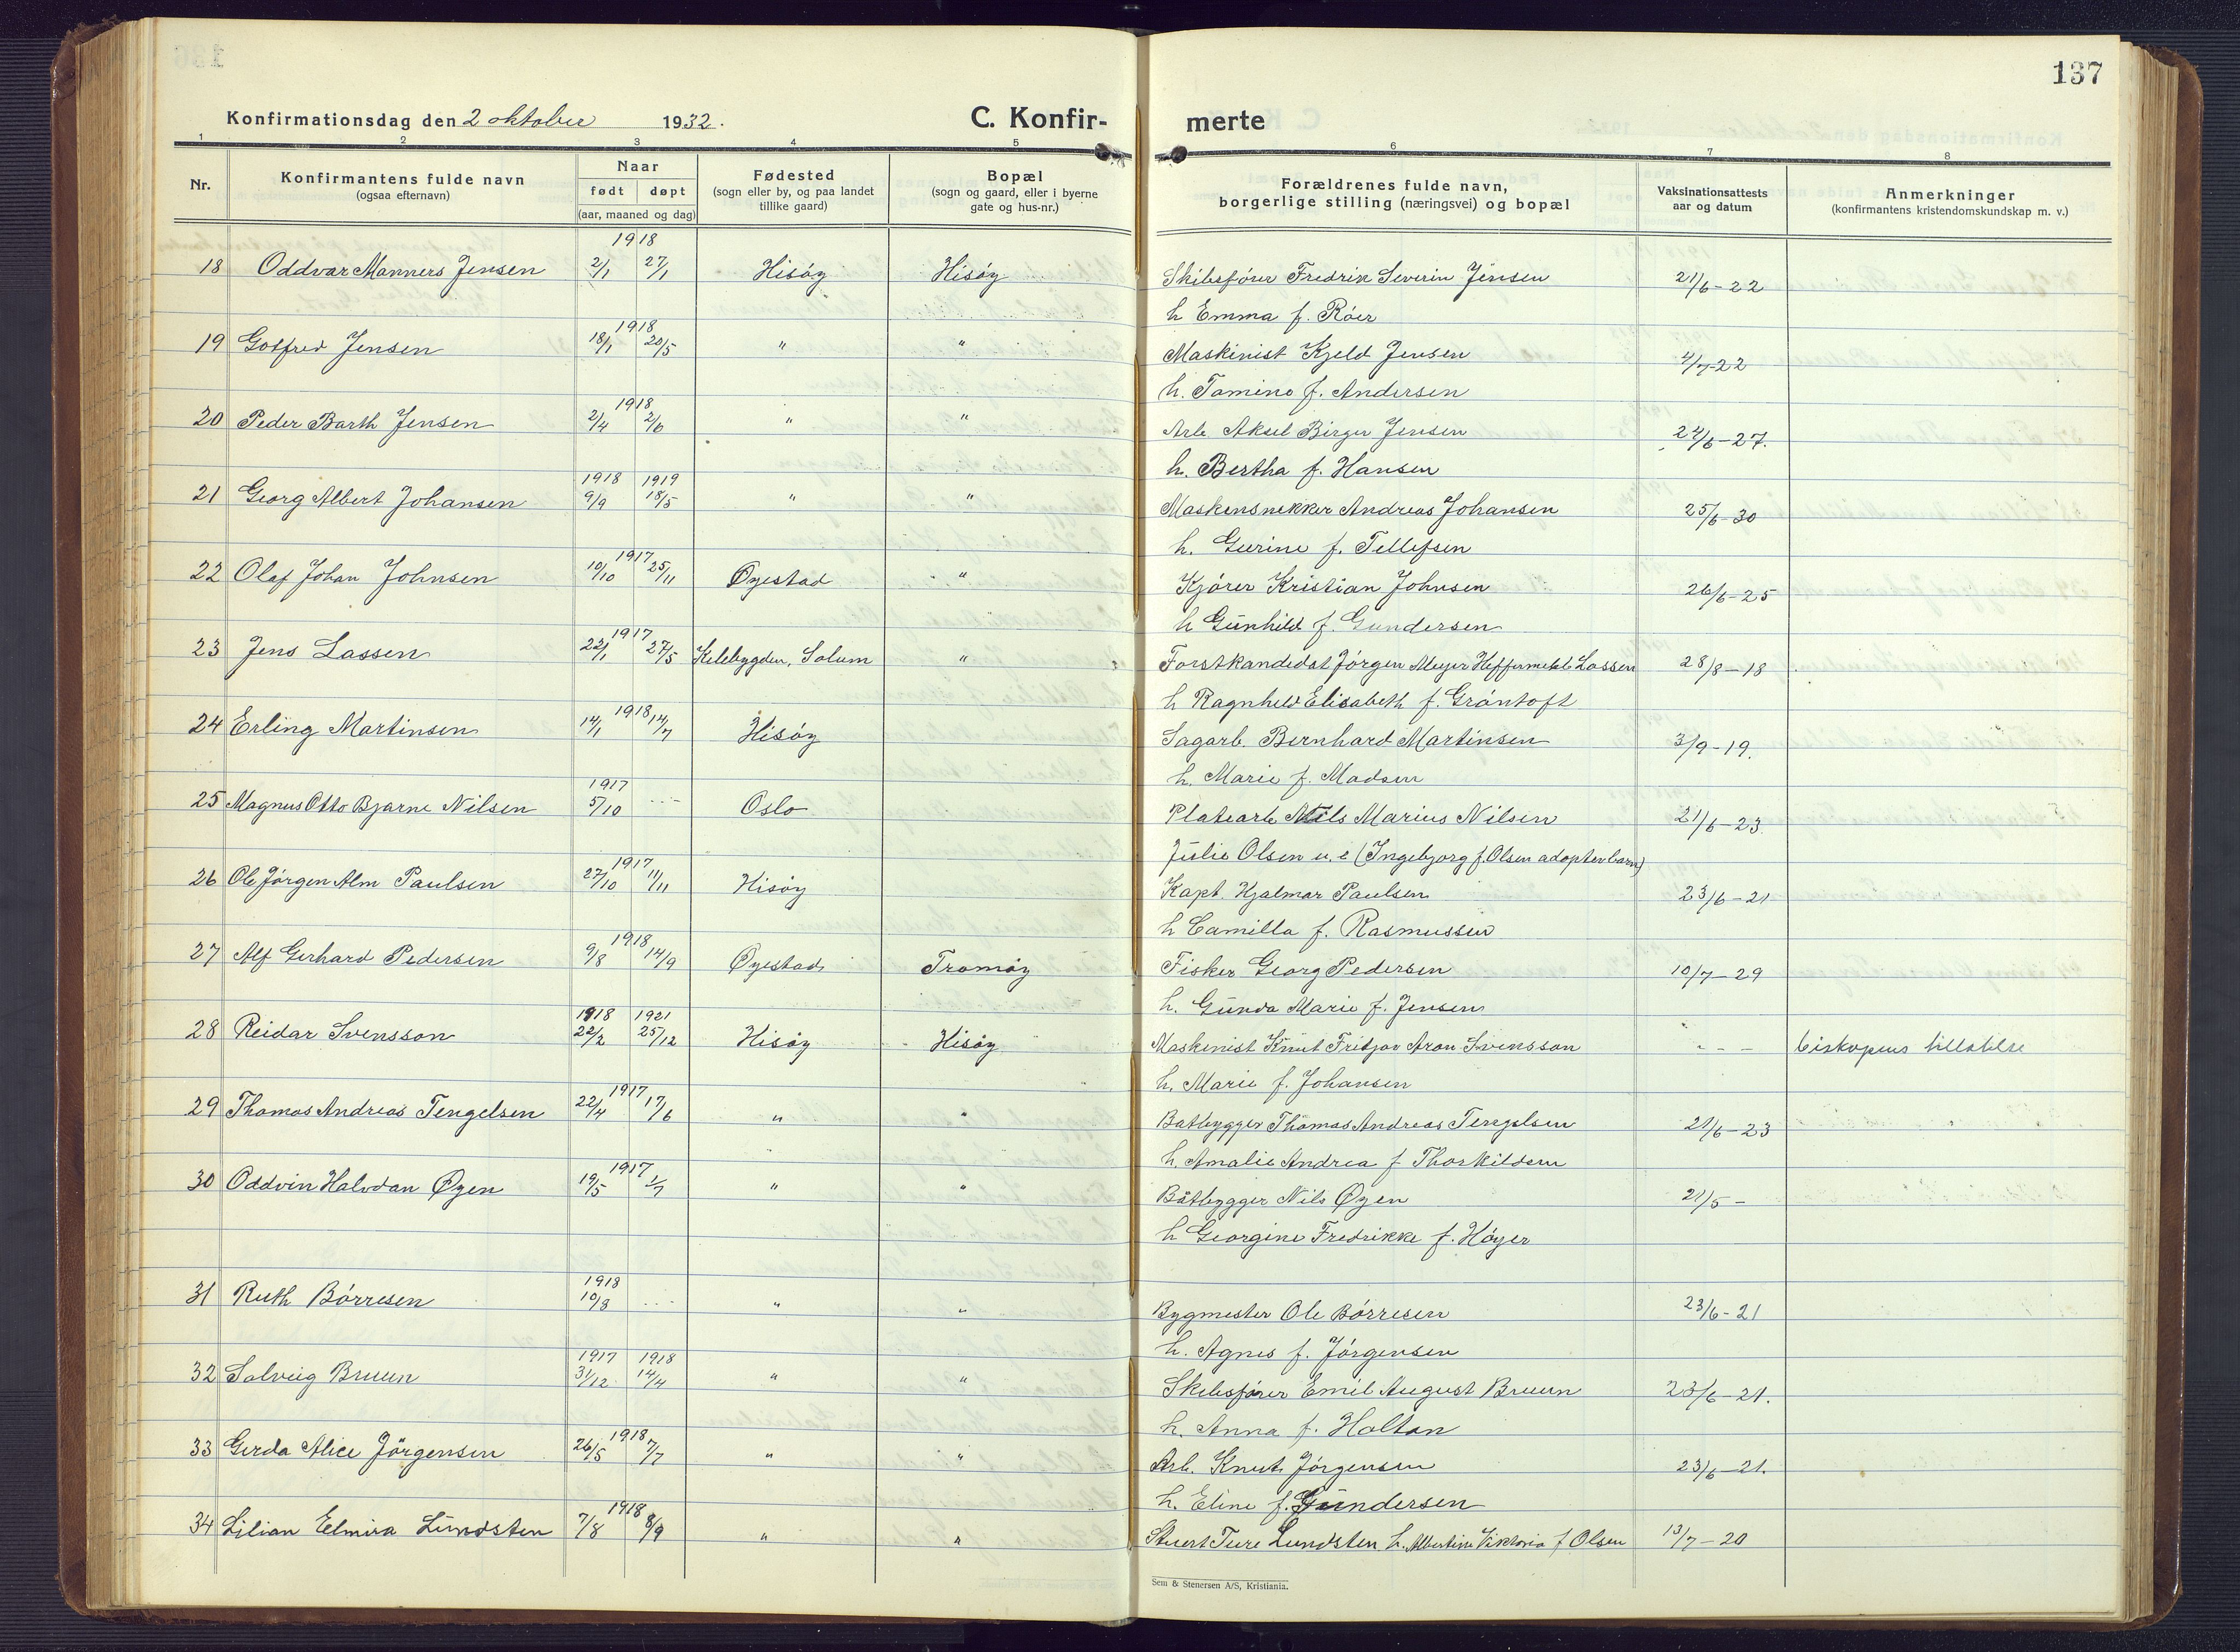 137
Konfirmationsdag den 2 oktober 1932. C. Konfir-
merte
1 2 3 4 5 6 7 8
Nr. Konfirmantens fulde navn (ogsaa efternavn) Naar født døpt (aar, maaned og dag) Fødested (sogn eller by, og paa landet tillike gaard) Bopæl (sogn og gaard, eller i byerne gate og hus-nr.) Forældrenes fulde navn, borgerlige stilling (næringsvei) og bopæl Vaksinationsattests aar og datum Anmerkninger (konfirmantens kristendomskundskap m. v.)
1918
18 Oddvar Manners Jensen 2/1 27/1 Hisøy Hisøy Skibsfører Fredrik Severin Jensen 21/6-22
h Emma f. Röer
1918
19 Gotfred Jensen 18/1 20/5 " " Maskinist Kjeld Jensen 4/7-22
h. Tomine f. Andersen
1918
20 Peder Barth Jensen 2/4 2/6 " " Arb Aksel Birger Jensen 24/6-27.
h. Bertha f. Hansen
1918 1919
21 Georg Albert Johansen 9/9 18/5 " " Maskinsnekker Andreas Johansen 25/6-30
h. Gurine f. Tellefsen
1917
22 Olaf Johan Johnsen 10/10 25/11 Øyestad " Kjører Kristian Johnsen 26/6-25
h Gunhild f. Gundersen
1917
23 Jens Lassen 22/1 27/5 Kilebygden, Solum " Forstkandidat Jørgen Meyer Lassen 28/8-18
h Ragnhild Elisabeth f. Gröntoft
1918
24 Erling Martinsen 14/1 14/7 Hisøy Sagarb. Bernhard Martinsen 3/9-19.
h. Marie f. Madsen
1917
25 Magnus Otto Bjarne Nilsen 5/10 - - - Oslo Platearb Nils Marius Nilsen 21/6-23.
Julie Olsen u. e (Ingebjorg f. Olsen adoptivbarn)
1917
26 Ole Jörgen Alm Paulsen 27/10 11/11 Hisøy Kapt. Hjalmar Paulsen 23/6-21
h Camilla f. Rasmussen
1918
27 Alf Gerhard Pedersen 9/8 14/9 Øyestad Tromøy Fisker Georg Pedersen 10/7-29
h. Gunda Marie f. Jensen
1918 1921
28 Reidar Svensson 22/2 25/12 Hisøy Hisøy Maskinist Knut Fritjov Aron Svensson - - - biskopens tillatelse
h. Marie f. Johansen
1917
29 Thomas Andreas Tengelsen 22/4 17/6 " " Båtbygger Thomas Andreas Tengelsen 21/6-23
h. Amalie Andrea f Thorkildsen
1917
30 Oddvin Halvdan Øyen 19/5 1/7 " " Båtbygger Nils Øyen 21/5-
h Georgine Fredrikke f. Høyer
1918
31 Ruth Börresen 10/8 - - - " " Bygmester Ole Börresen 23/6-21
h. Agnes f. Jörgensen
1917 1918
32 Solveig Bruun 31/12 14/4 " " Skibsfører Emil August Bruun 23/6-21.
h. Anna f. Holtan
1918
33 Gerda Alice Jörgensen 26/5 7/7 " " Arb. Knut Jörgensen 23/6-21.
h. Eline f. Gundersen
1918
34 Lilian Elmira Lundsten 7/8 8/9 " " Stuert Ture Lundsten h. Albertine Viktoria f Olsen 13/7-20
Sem & Stenersen A/S, Kristiania.